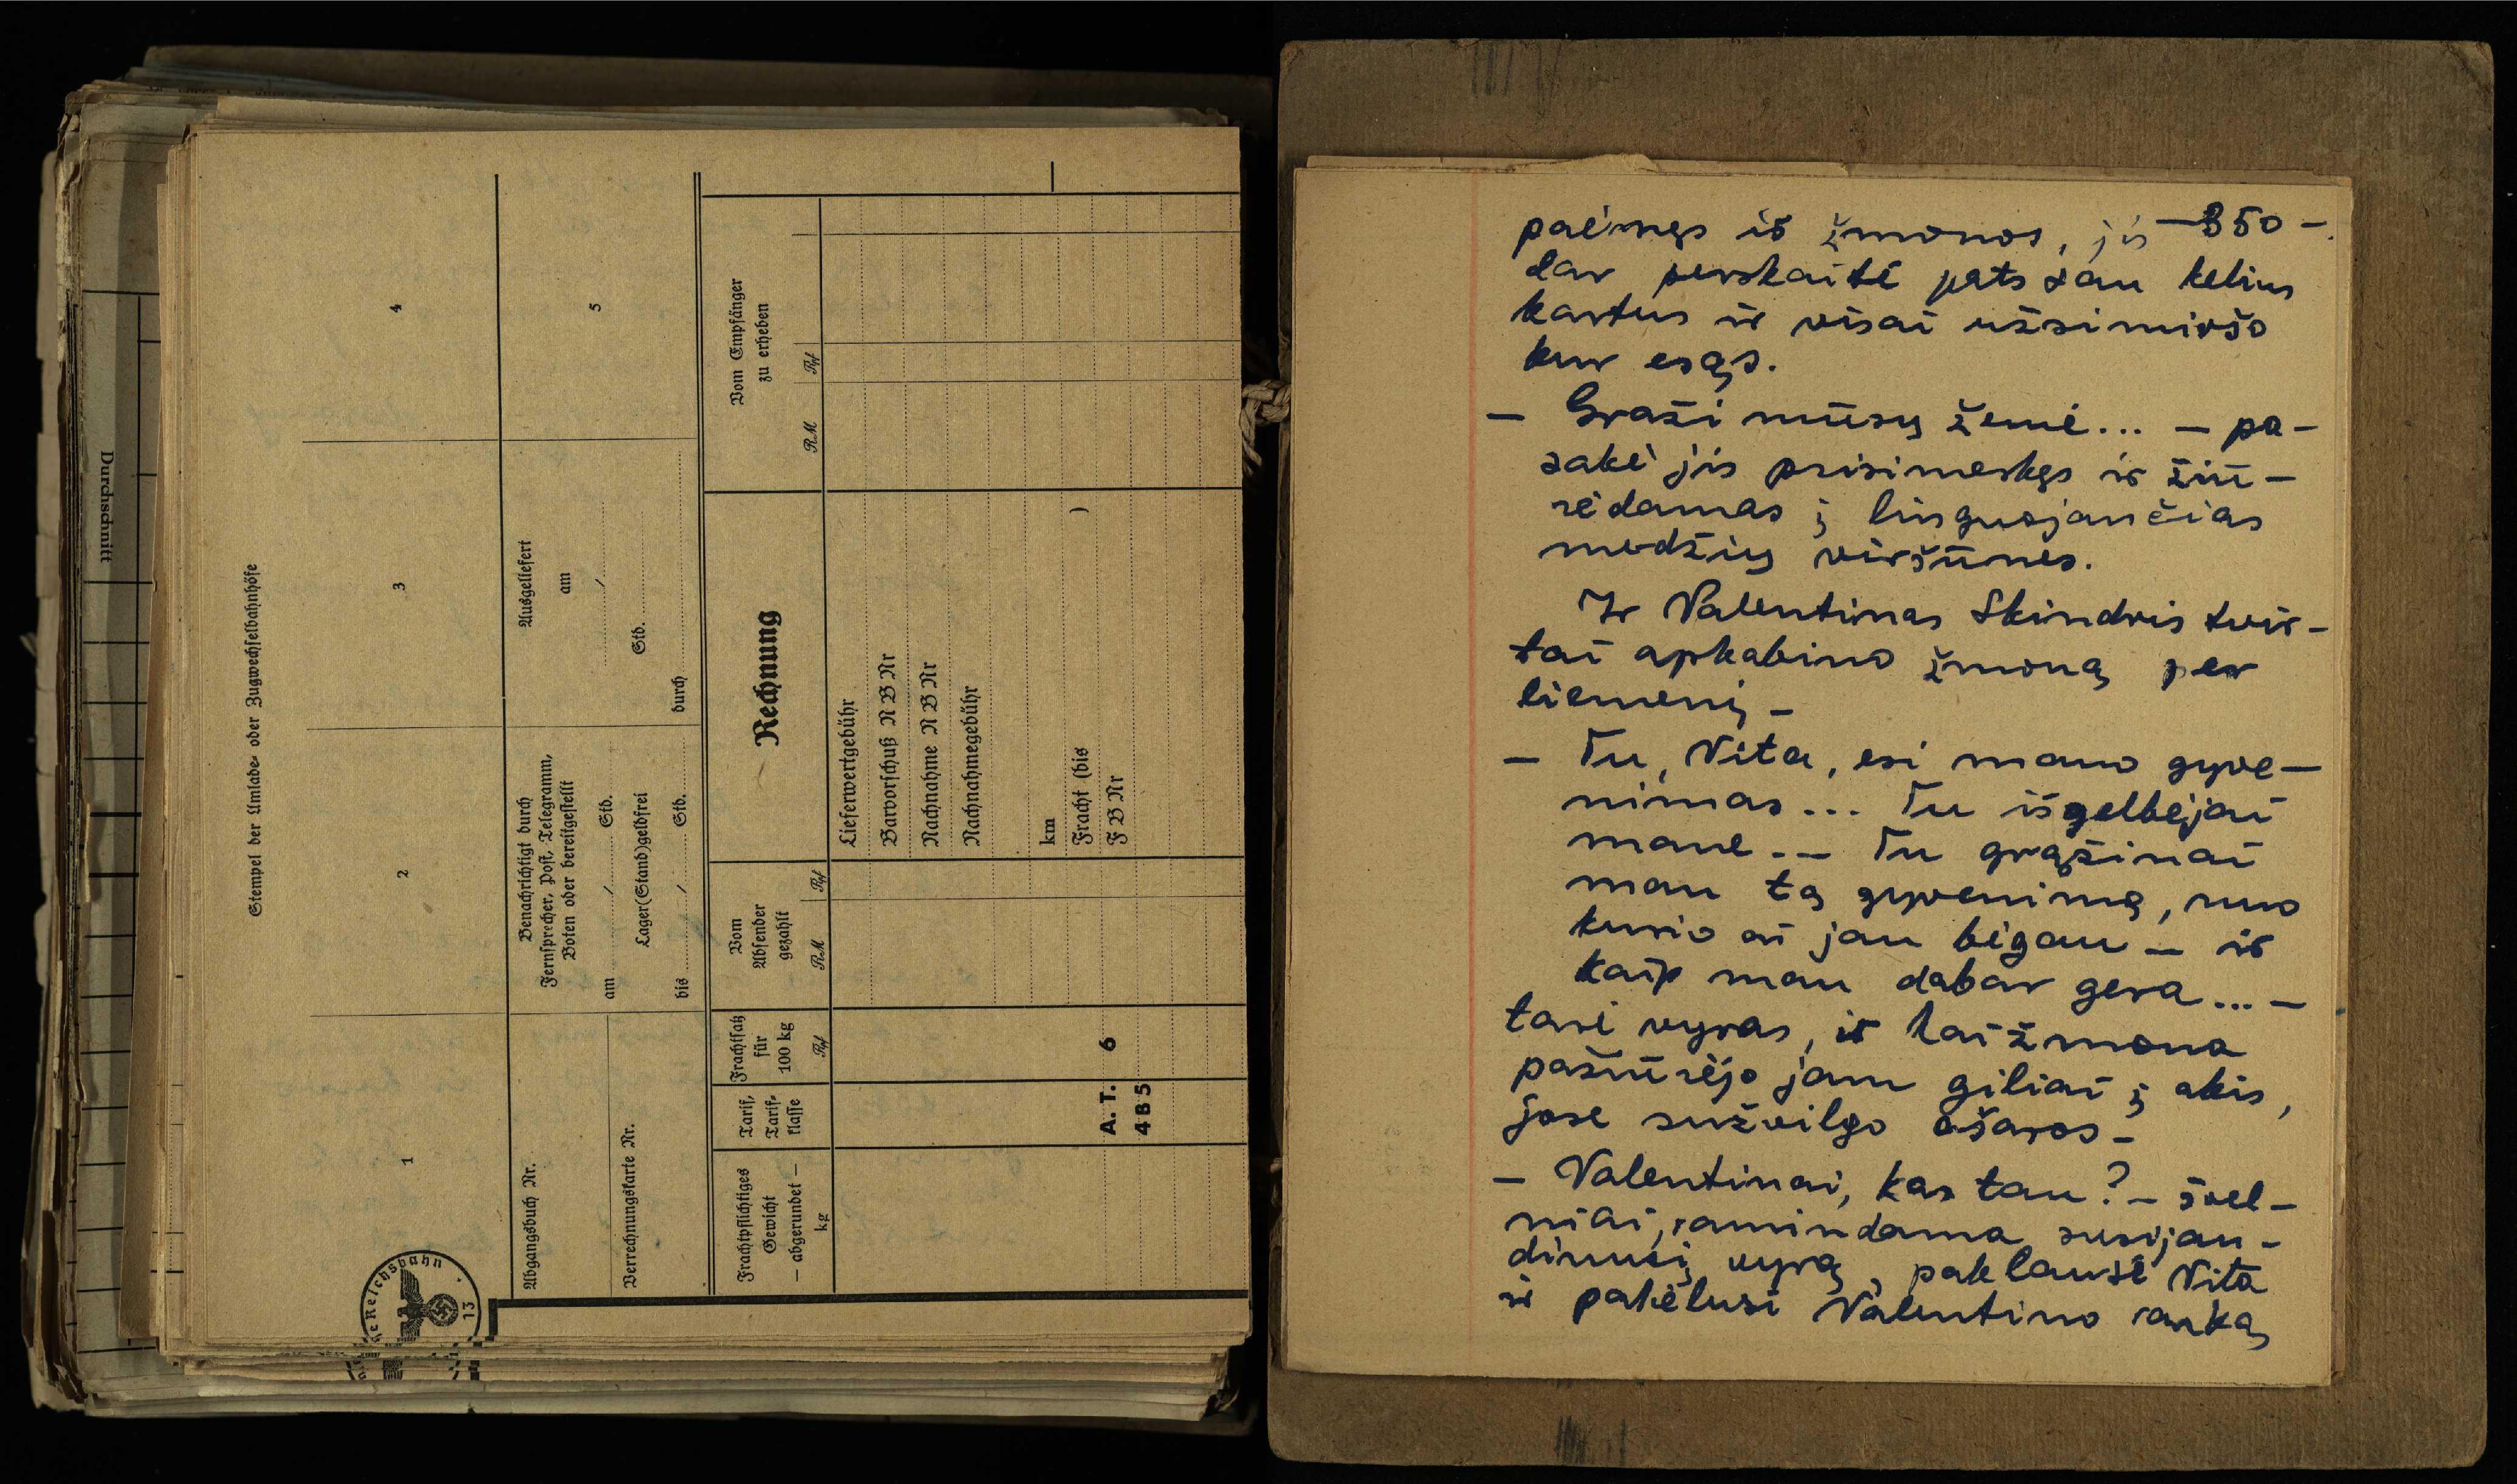 Durchschnitt
Stempel der Umlade- oder Zugwechselbahnhöfe
1
2
3
4
Abgangsbuch Nr.
Verrechnungskarte Nr.
Benachrichtigt durch
Fernsprecher, Post, Telegramm,
Boten oder bereitgestellt
am / Std.
Lager(Stand)geldfrei
bis / Std.
Ausgeliefert
am
/
Std.
durch
5
Frachtpflichtiges
Gewicht
— abgerundet —
kg
Tarif,
Tarif-
klasse
Frachtsatz
für
100 kg
Rpf
Vom
Absender
gezahlt
RM
Rpf
Rechnung
Vom Empfänger
zu erheben
RM
Rpf
Lieferwertgebühr
Barvorschuß N B Nr
Nachnahme N B Nr
Nachnahmegebühr
km
Fracht (bis )
F B Nr
A. T. 6
4 B 5
Reichsbahn
13
— 350 —
paėmęs iš žmonos, jis
dar perskaitė pats sau kelius
kartus ir visai užsimiršo
kur esąs.
— Graži mūsų žemė... — pa-
sakė jis prisimerkęs ir žiū-
rėdamas į linguojančias
medžių viršūnes.
Ir Valentinas Skindris tvir-
tai apkabino žmoną per
liemenį —
— Tu, Vita, esi mano gyve-
nimas... Tu išgelbėjai
mane — Tu grąžinai
man tą gyvenimą, nuo
kurio aš jau bėgau — ir
kaip man dabar gera... —
tarė vyras, ir kai žmona
pažiūrėjo jam giliai į akis,
jose sužvilgo ašaros —
— Valentinai, kas tau? — švel-
niai, ramindama susijau-
dinusį vyrą, paklausė Vita
ir pakėlusi Valentino ranką